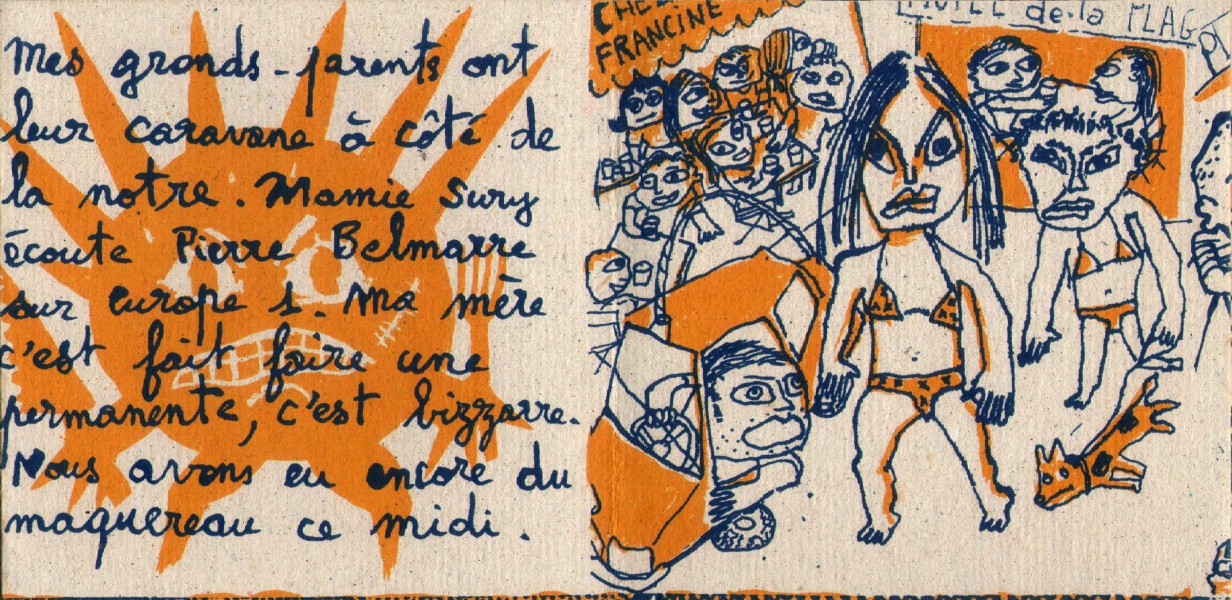 Mes grands-parents ont
leur caravane à côté de
la notre. Mamie Sury
écoute Pierre Belmarre
sur Europe 1. Ma mère
c'est fait faire une
permanente, c'est bizzarre.
Nous avons eu encore du
maquereau ce midi.
CHEZ
FRANCINE
de.la PLAG